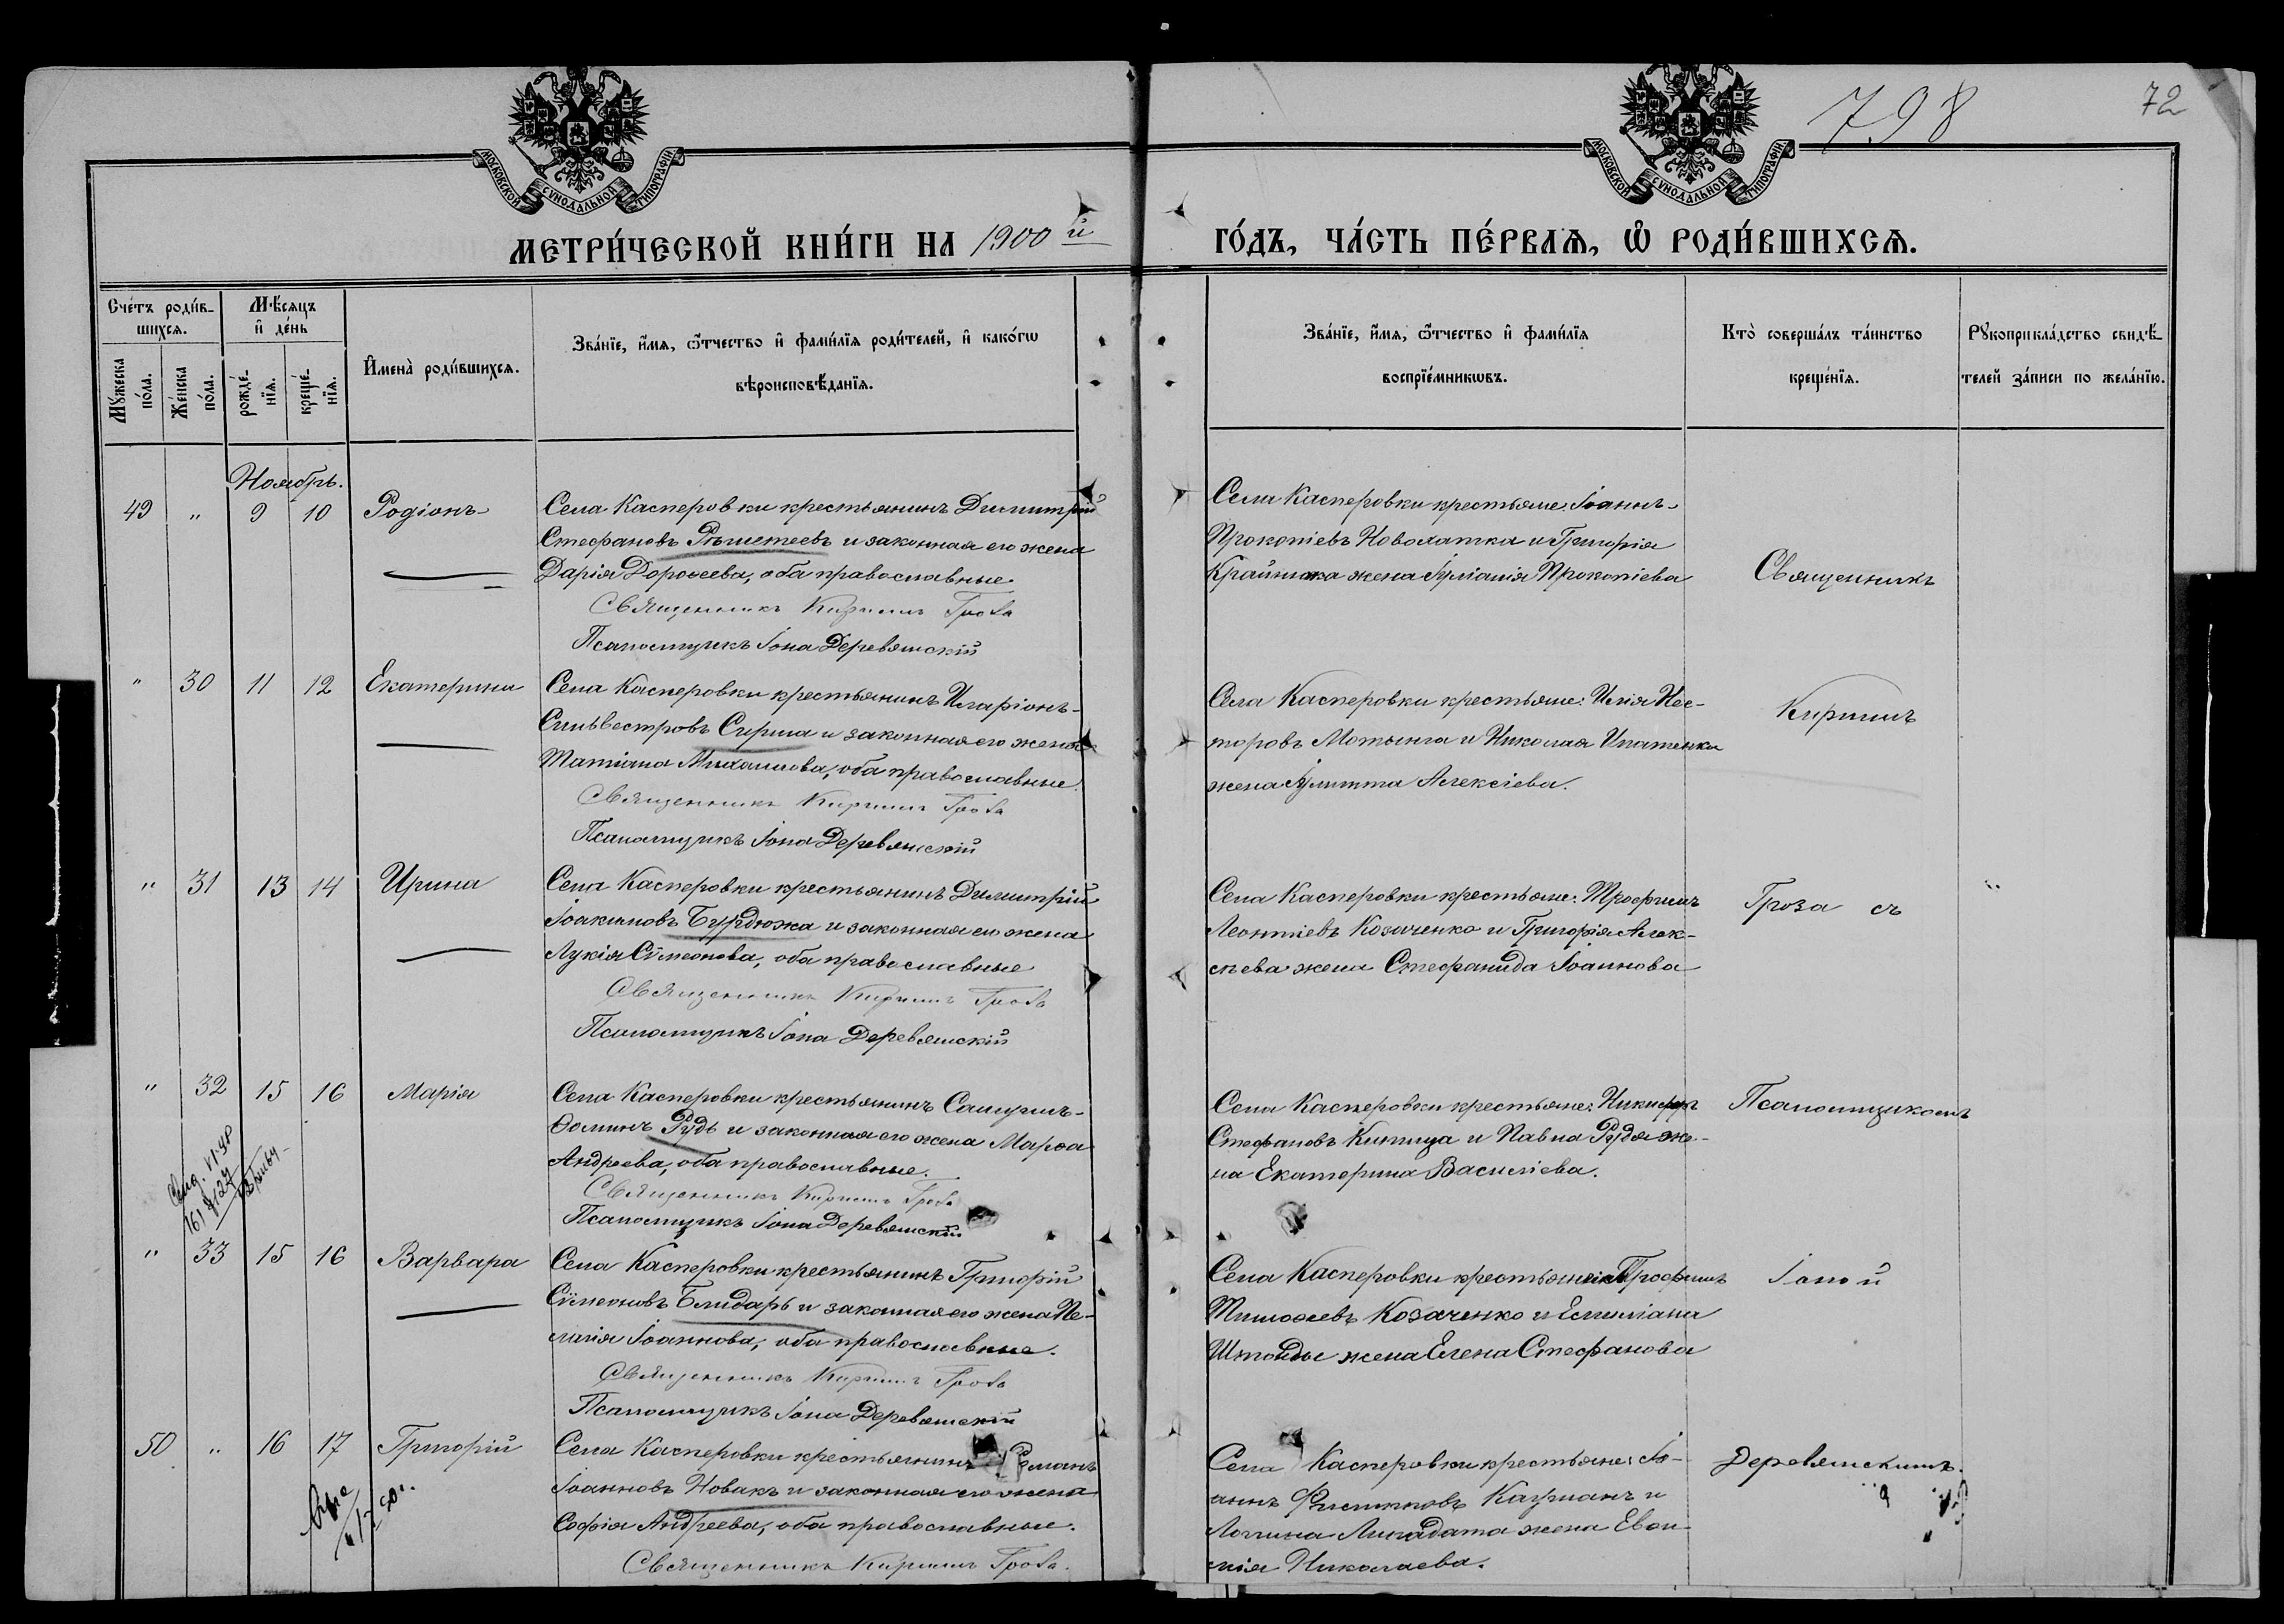 798
72
МОСКОВСКОЙ СѴНОДАЛЬНОЙ ТИПОГРАФІИ
МОСКОВСКОЙ СѴНОДАЛЬНОЙ ТИПОГРАФІИ
МЕТРИ́ЧЕСКОЙ КНИ́ГИ НА 1900 й
ГО́ДЪ, ЧА́СТЬ ПЕ́РВАѦ, Ѡ҆ РОДИ́ВШИХСѦ.
Сче́тъ роди́в-
шихсѧ.
Мꙋ́жеска по́ла.
Же́нска по́ла.
Мѣ́сѧцъ
и҆ де́нь
рожде́-
нїѧ.
креще́-
нїѧ.
И҆мена̀ роди́вшихсѧ.
Зва́нїе, и҆́мѧ, ѻ҆́тчество и҆ фами́лїѧ роди́телей, и҆ како́гѡ
вѣроисповѣ́данїѧ.
Зва́нїе, и҆́мѧ, ѻ҆́тчество и҆ фами́лїѧ
воспрїе́мникѡвъ.
Кто̀ соверша́лъ та́инство
креще́нїѧ.
Рꙋкоприкла́дство свидѣ́-
телей за́писи по жела́нїю.
Ноябрь.
49 " 9 10 Родіонъ
Села Касперовки крестьянинъ Димитрій
Стефановъ и законная его жена
Дарія Дороѳеева, оба православные
Священникъ Кириллъ Гроза
Псаломщикъ Іона Деревянскій
Села Касперовки крестьяне: Іоаннъ
Прокопіевъ Новохатка и Григорія
жена Іуліанія Прокопіева
Священникъ
" 30 11 12 Екатерина
Села Касперовки крестьянинъ Иларіонъ
Сильвестровъ и законная его жена
Татіана Михаилова, оба православные.
Священникъ Кириллъ Гроза
Псаломщикъ Іона Деревянскій
Села Касперовки крестьяне: Илія Нес-
торовъ Мотынга и Николая Ипатенка
жена Іулитта Алексіева.
Кириллъ
" 31 13 14 Ирина
Села Касперовки крестьянинъ Димитрій
Іоакимовъ Бурдюжа и законная его жена
Лукія Сѵмеонова, оба православные
Священникъ Кириллъ Гроза
Псаломщикъ Іона Деревянскій
Села Касперовки крестьяне: Трофимъ
Леонтіевъ Козаченко и Григорія Алек-
сѣева жена Стефанида Іоаннова
Гроза съ
" 32 15 16 Марія
Села Касперовки крестьянинъ Самуилъ
Ѳоминъ Рудь и законная его жена Марѳа
Андреева, оба православные.
Священникъ Кириллъ Гроза
Псаломщикъ Іона Деревянскій
Села Касперовки крестьяне: Никифоръ
Стефановъ Кипица и Павла Рудя же-
на Екатерина Василіева.
Псаломщикомъ
" 33 15 16 Варвара
Села Касперовки крестьянинъ Григорій
Сѵмеоновъ Блидарь и законная его жена Пе-
лагія Іоаннова, оба православные.
Священникъ Кириллъ Гроза
Псаломщикъ Іона Деревянскій
Села Касперовки крестьяне: Трофимъ
Тимоѳеевъ Козаченко и Емиліана
Штонды жена Елена Стефанова
Іоной
50 " 16 17 Григорій
Села Касперовки крестьянинъ Романъ
Іоанновъ Новакъ и законная его жена
Софія Андреева, оба православные.
Священникъ Кириллъ Гроза.
Села Касперовки крестьяне: Іо-
аннъ Кауманъ и
жена Евѳи-
мія Николаева.
Деревянскимъ.